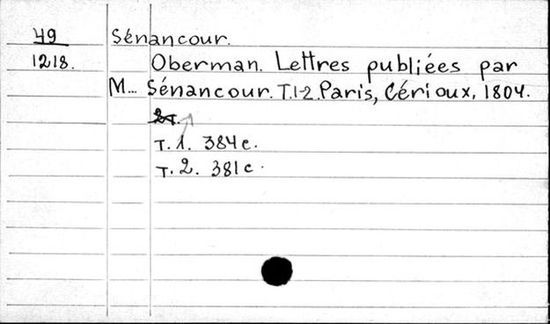 49 Sénancour.
1218. Oberman. Lettres publiées par
M... Sénancour. T.1-2. Paris, Cérioux, 1804.
2т.
т. 1. 384 с.
т. 2. 381 с.